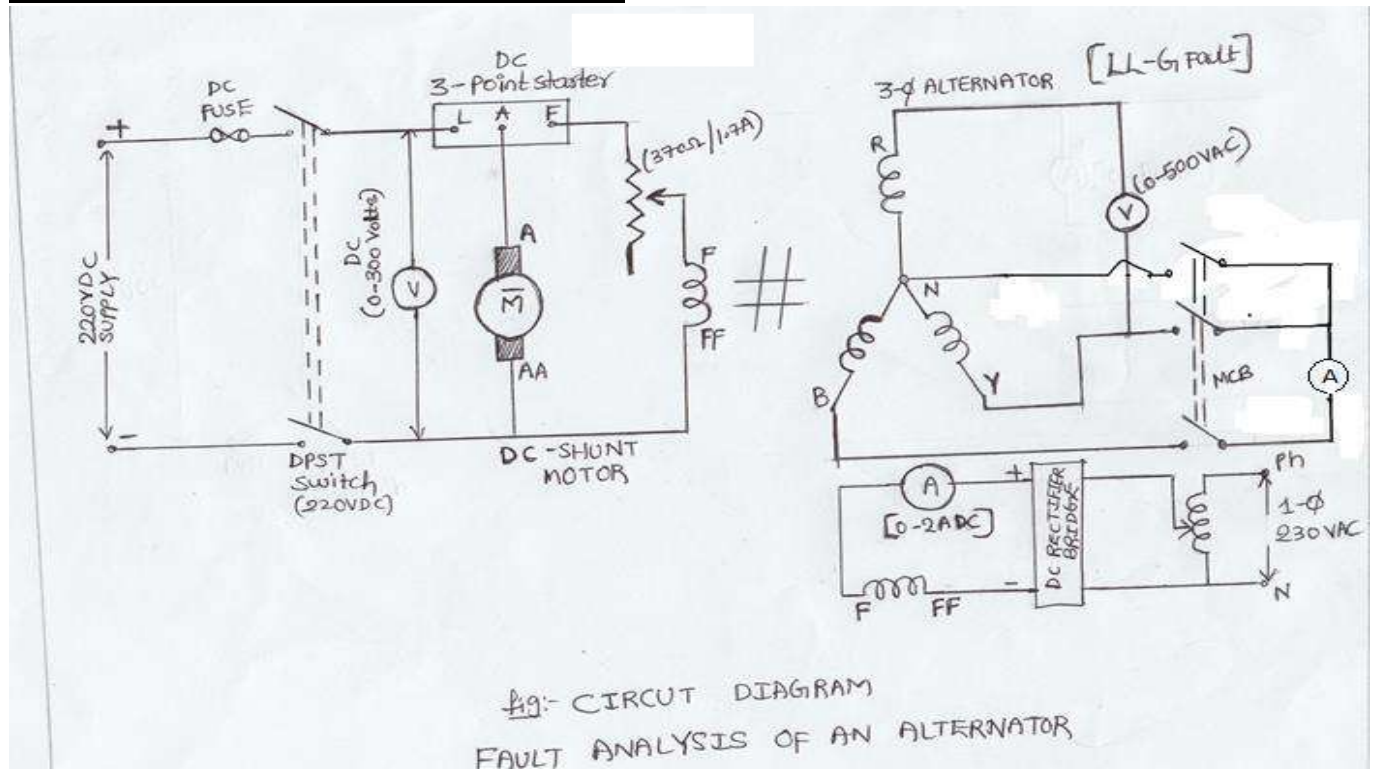 DC
3-Point starter
DC
FUSE
+
L A F
(370Ω/1.7A)
220VDC
SUPPLY
DC
(0-300 Volts)
V
A
M
AA
F
FF
-
DPST
Switch
(220VDC)
DC-SHUNT
MOTOR
[LL-G Fault]
3-φ ALTERNATOR
R
(0-500VAC)
V
N
B
Y
MCB
A
A
[0-2ADC]
+
-
DC RECTIFIER
BRIDGE
F
FF
Ph
1-Φ
230 VAC
N
fig:- CIRCUT DIAGRAM
FAULT ANALYSIS OF AN ALTERNATOR